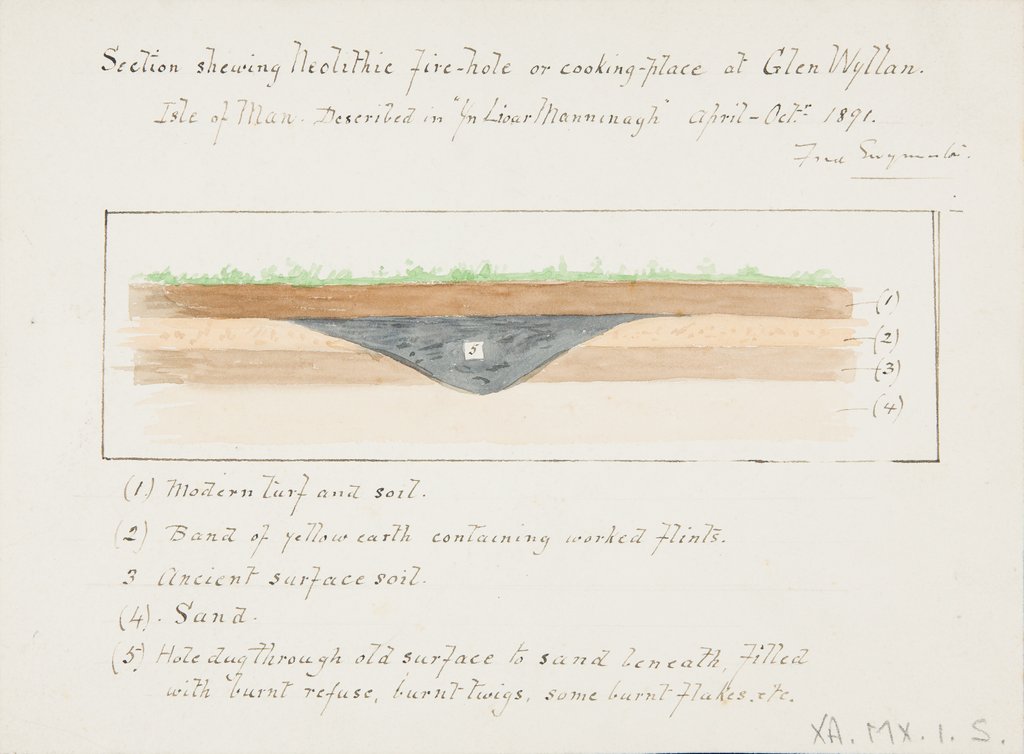 Section shewing Neolithic fire-hole or cooking-place at Glen Wyllan.
Isle of Man. Described in "Yn Lioar Manninagh" April - Octr. 1891.
Fred
(1)
(2)
5
(3)
(4)
(1) Modern turf and soil.
(2) Band of yellow earth containing worked flints.
3 Ancient surface soil.
(4). Sand.
(5) Hole dug through old surface to sand beneath, filled
with burnt refuse, burnt twigs, some burnt flakes. etc.
XA. MX. I. S.